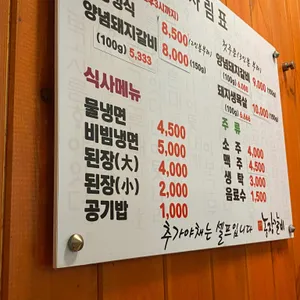 차림표
8,500
양념돼지갈비 8,000 (150g)
(100g) 5,333
양념돼지갈비
(100g)
돼지생목살 10,000
(100g)
식사메뉴
물냉면 4,500
비빔냉면 5,000
된장(大) 4,000
된장(小) 2,000
공기밥 1,000
주 류
소 주 4,000
맥 주 4,500
생 탁 3,000
음료수 1,500
추가야채는 셀프입니다